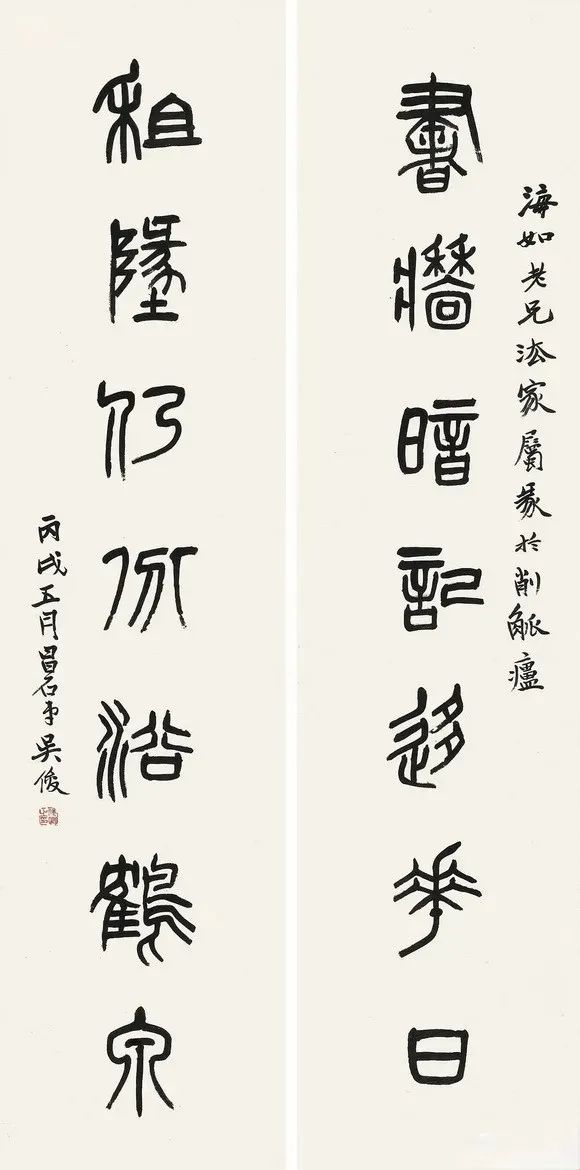 海如老兄法家屬篆於削觚廬
書牆暗記迻花日
租墬仍分浴鶴泉
丙戌五月昌石弟吳俊